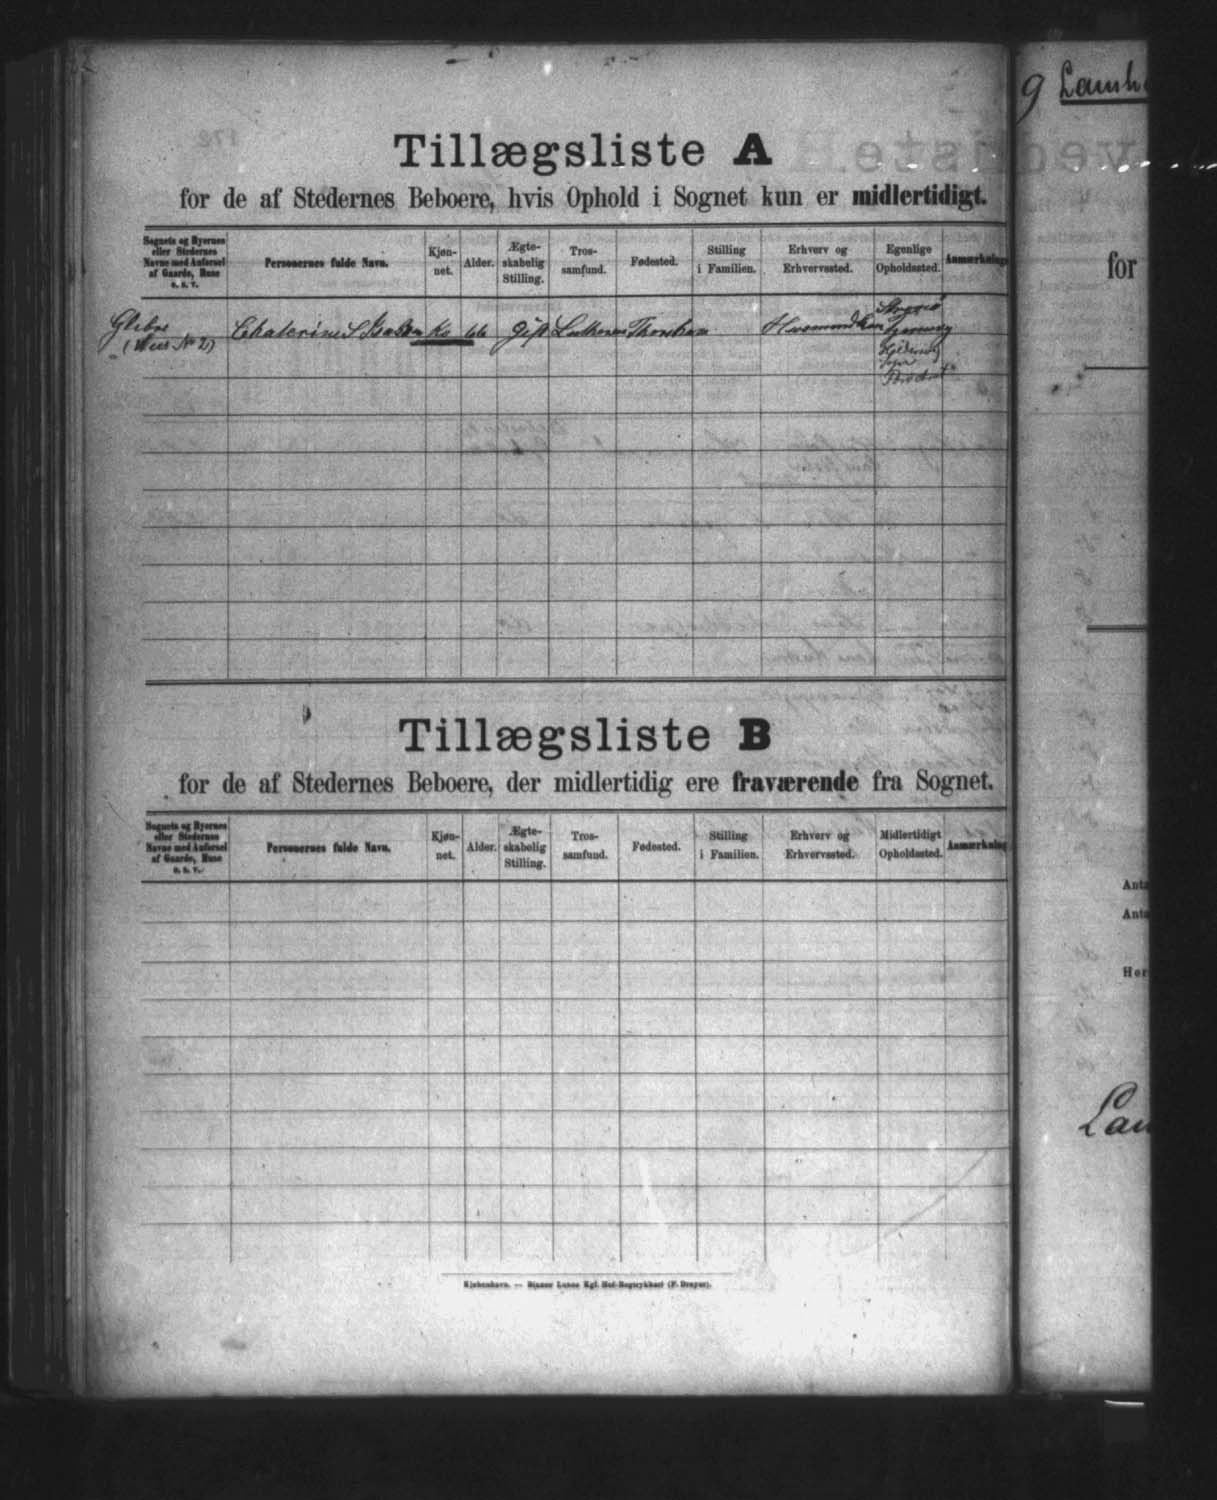 9 Lamh
Tillægsliste A
for de af Stedernes Beboere, hvis Ophold i Sognet kun er midlertidigt.
for
Sognets og Byernes eller Stedernes Navne med Anførsel af Gaarde, Huse o. s. v.
Personernes fulde Navn.
Kjøn-
net.
Alder.
Ægte-
skabelig
Stilling.
Tros-
samfund.
Fødested.
Stilling
i Familien.
Erhverv og
Erhvervssted.
Egenlige
Opholdssted.
Anmærkning
Glibre
(Huus No 2)
Chaterine S Isaksen Kv 66 Gift Luthersk Thorshavn
Tillægsliste B
for de af Stedernes Beboere, der midlertidig ere fraværende fra Sognet.
Sognets og Byernes eller Stedernes Navne med Anførsel af Gaarde, Huse o. s. v.
Personernes fulde Navn.
Kjøn-
net.
Alder.
Ægte-
skabelig
Stilling.
Tros-
samfund.
Fødested.
Stilling
i Familien.
Erhverv og
Erhvervssted.
Midlertidigt
Opholdssted.
Anmærkning
Anta
Anta
Her
Lam
Kjøbenhavn. — Bianco Lunos Kgl. Hof-Bogtrykkeri (F. Dreyer).